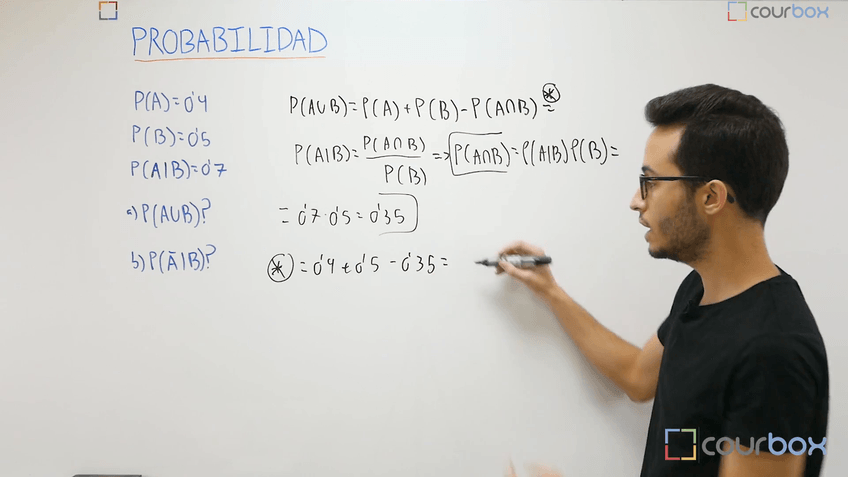 courbox
PROBABILIDAD
P(A)=0'4
P(B)=0'5
P(A|B)=0'7
a) P(A∪B)?
b) P(Ā|B)?
P(A∪B)=P(A)+P(B)-P(A∩B)=
P(A|B)=P(A∩B)/P(B) => P(A∩B)=P(A|B)P(B)=
=0'7·0'5=0'35
* =0'4+0'5-0'35=
courbox